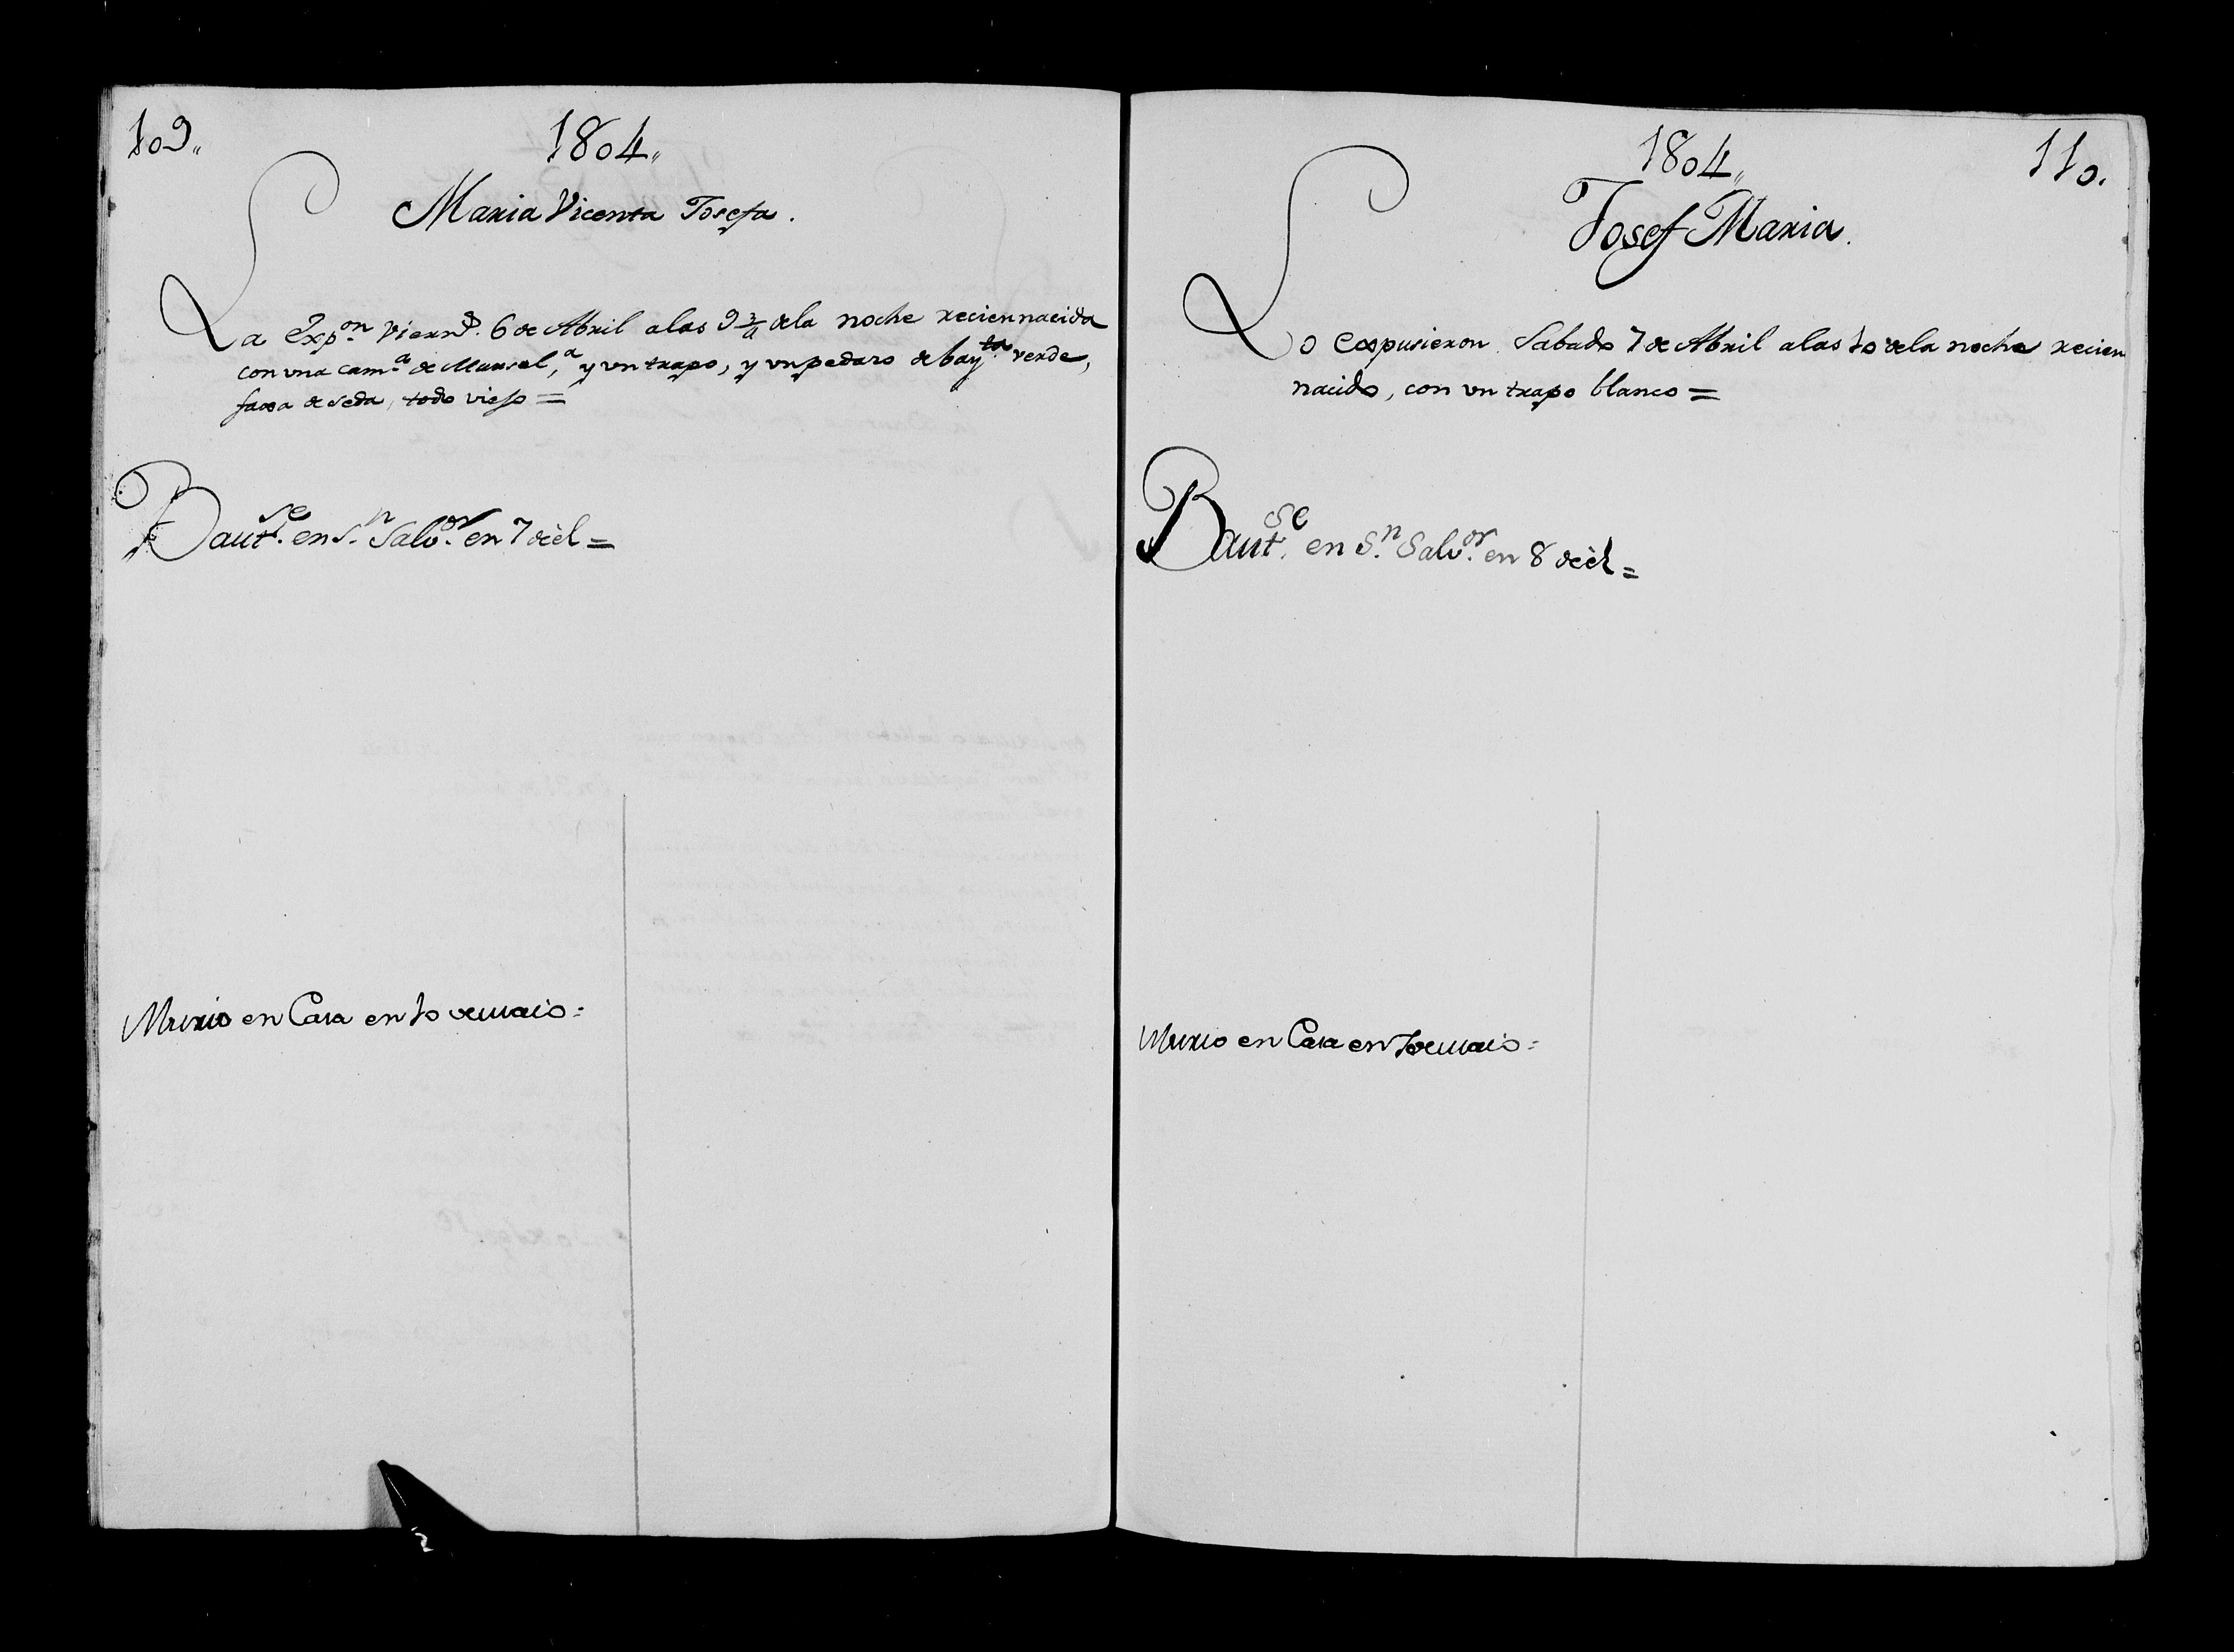 109,,
1804,,
Maria Vicenta Josefa.
La Exp.on Viern.s 6 de Abril alas 9 3/4 dela noche reciennacida
con una cam.a de Mursel,a y un trapo, y un pedazo de bay.ta verde,
faxa de seda, todo viejo =
Baut.se en S.n Salv.or en 7 deèl =
Murio en Casa en 10 de maio =
110.
1804,,
Josef Maria.
Lo Expusieron Sabado 7 de Abril alas 10 dela noche recien
nacido, con un trapo blanco =
Baut.se en S.n Salv.or en 8 deèl =
Murio en Casa en de maio =